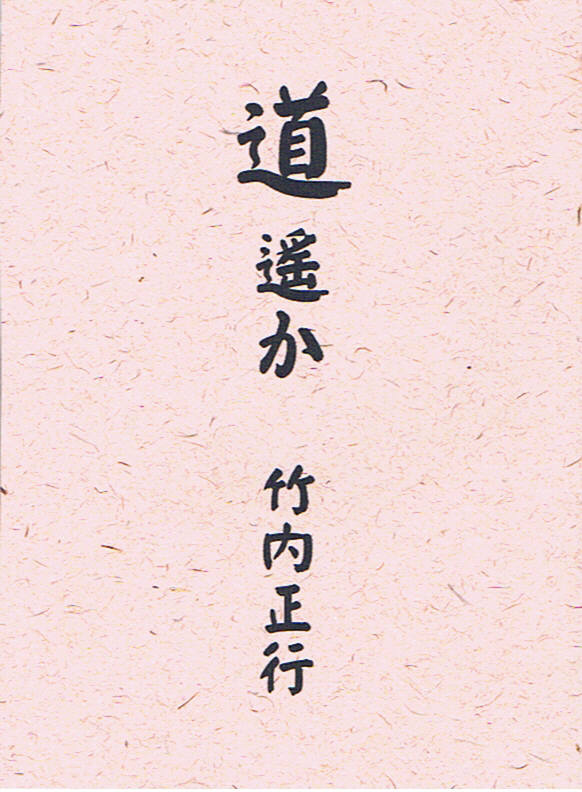 道 遥か 竹内正行